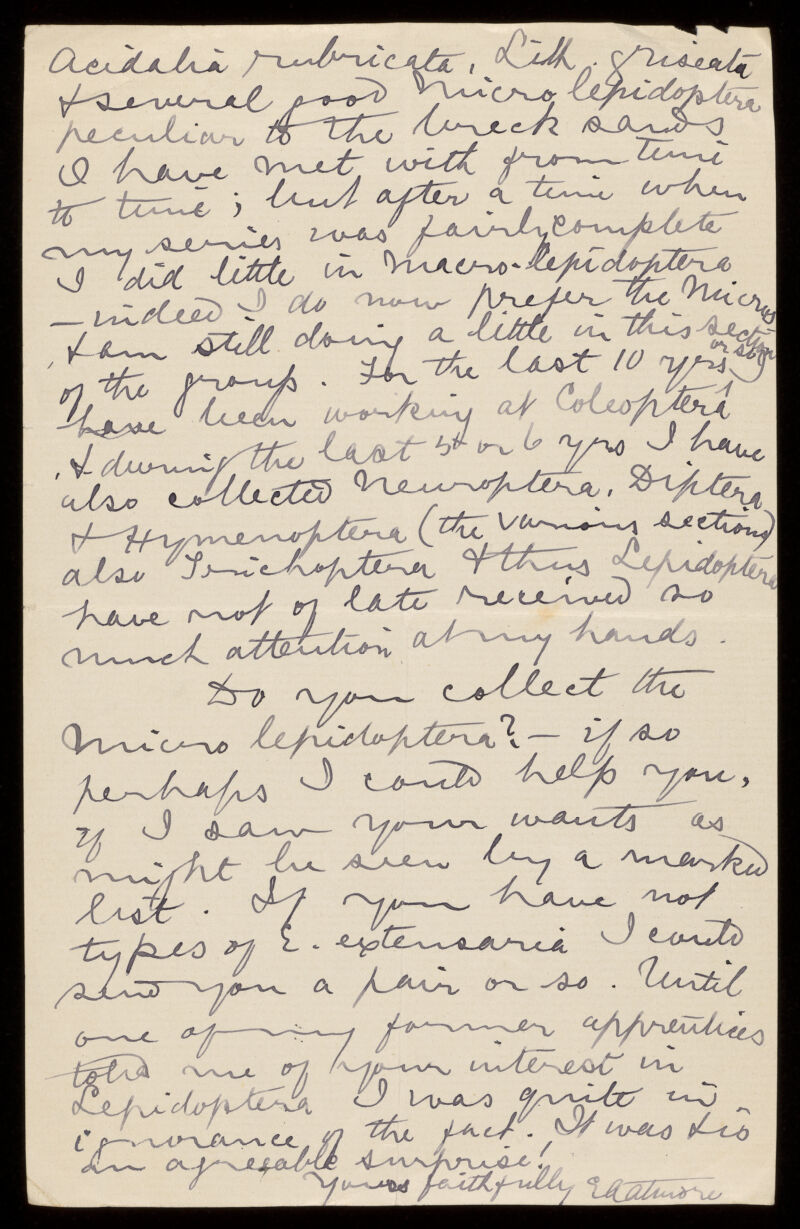 Acidalia rubricata, Lith. griseata
& several good Micro lepidoptera
peculiar to the Breck sands
I have met with from time
to time; but after a time when
my series was fairly complete
I did little in Macro-lepidoptera
— indeed I do now prefer the Micros
& am still doing a little in this section
of the group. For the last 10 yrs or so I
have been working at Coleoptera
& during the last 5 or 6 yrs I have
also collected Neuroptera, Diptera
& Hymenoptera (the various sections)
also Trichoptera & thus Lepidoptera
have not of late received so
much attention at my hands.
Do you collect the
Micro lepidoptera? — if so
perhaps I could help you,
if I saw your wants as
might be seen by a marked
list. If you have not
types of E. extensaria I could
send you a pair or so. Until
one of my former apprentices
told me of your interest in
Lepidoptera I was quite in
ignorance of the fact. It was & is
an agreeable surprise!
Yours faithfully EAAtmore